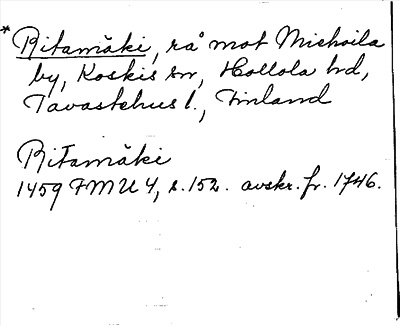 * Ritamäki, rå mot Miehoila
by, Koskis sn, Hollola hd,
Tavastehus l., Finland
Ritamäki
1459 FMU 4, s. 152. avskr. fr. 1746.